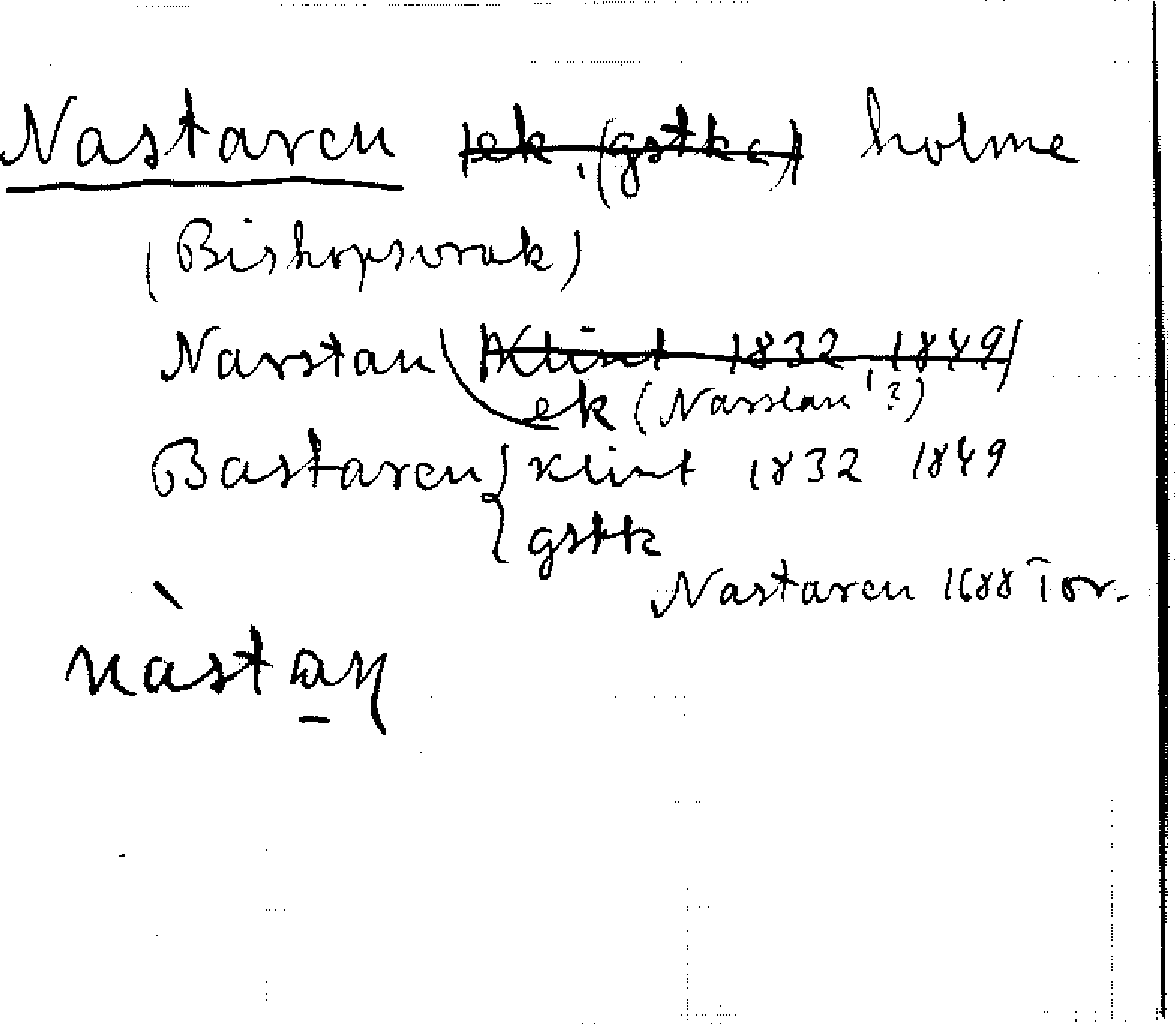 Nastaren ek, (gstkc) holme
(Biskopsvrak)
Narstan (Klint 1832, 1849)
ek (Narstan'?)
Bastaren { Klint 1832 1849
gstk
Nastaren 1688 Tor.
nàstaŋ